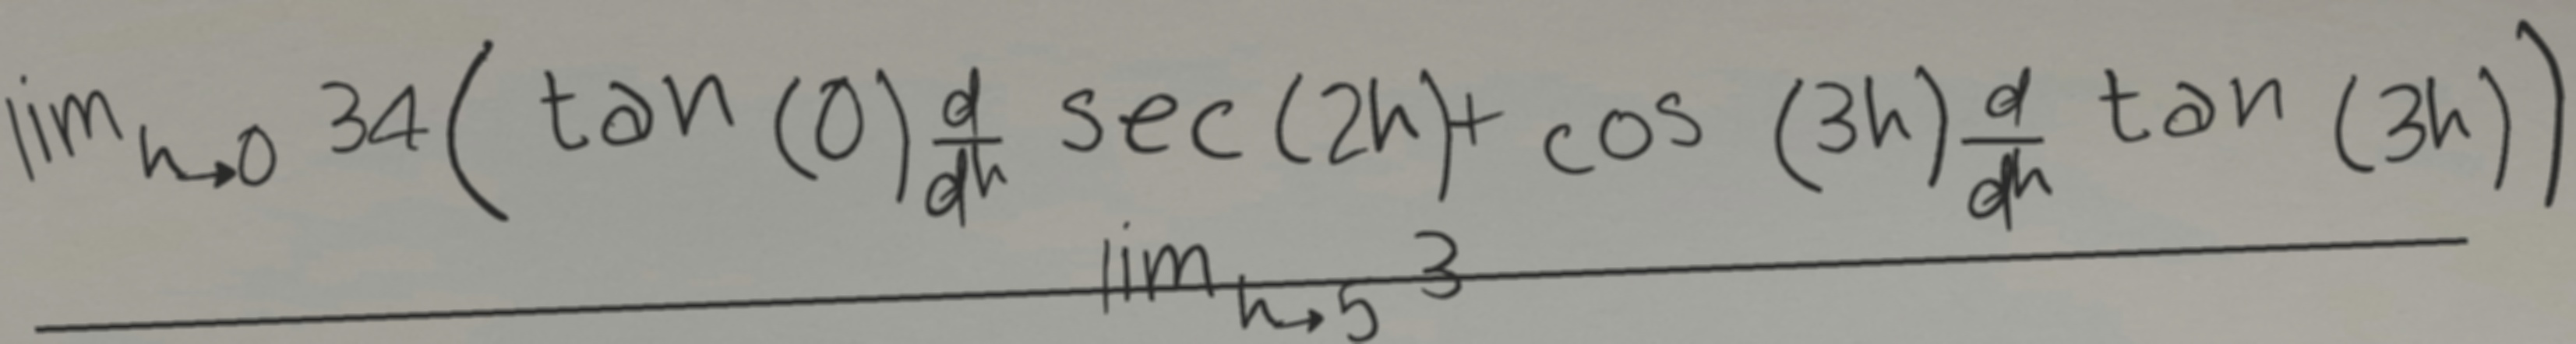 lim h→0 34 ( tan (0) d/dh sec (2h) + cos (3h) d/dh tan (3h) )
lim h→5 3